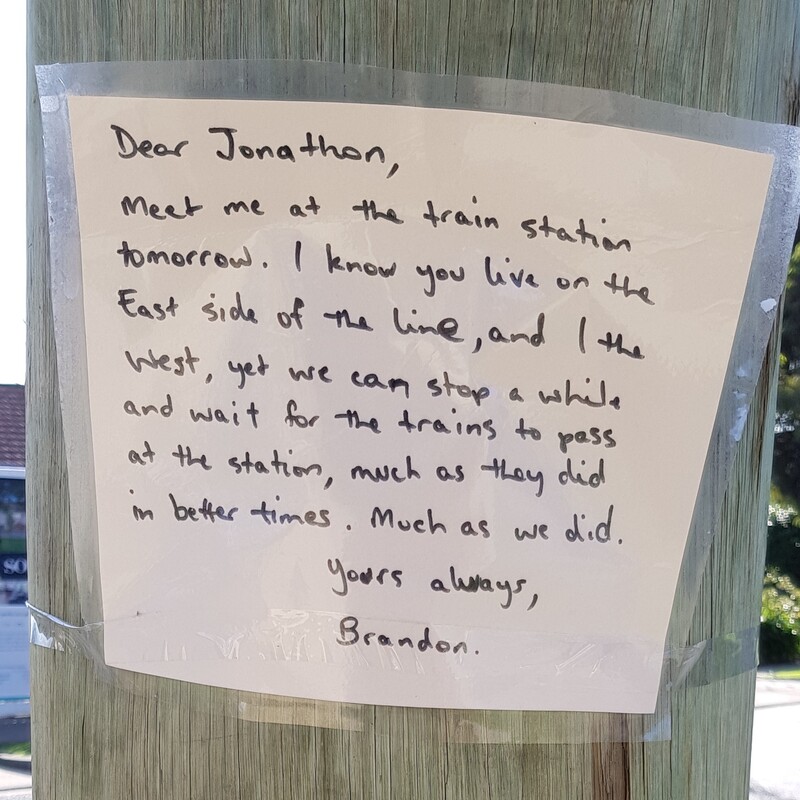 Dear Jonathon,
Meet me at the train station
tomorrow. I know you live on the
East side of the line, and I the
West, yet we can stop a while
and wait for the trains to pass
at the station, much as they did
in better times. Much as we did.
Yours always,
Brandon.
SO